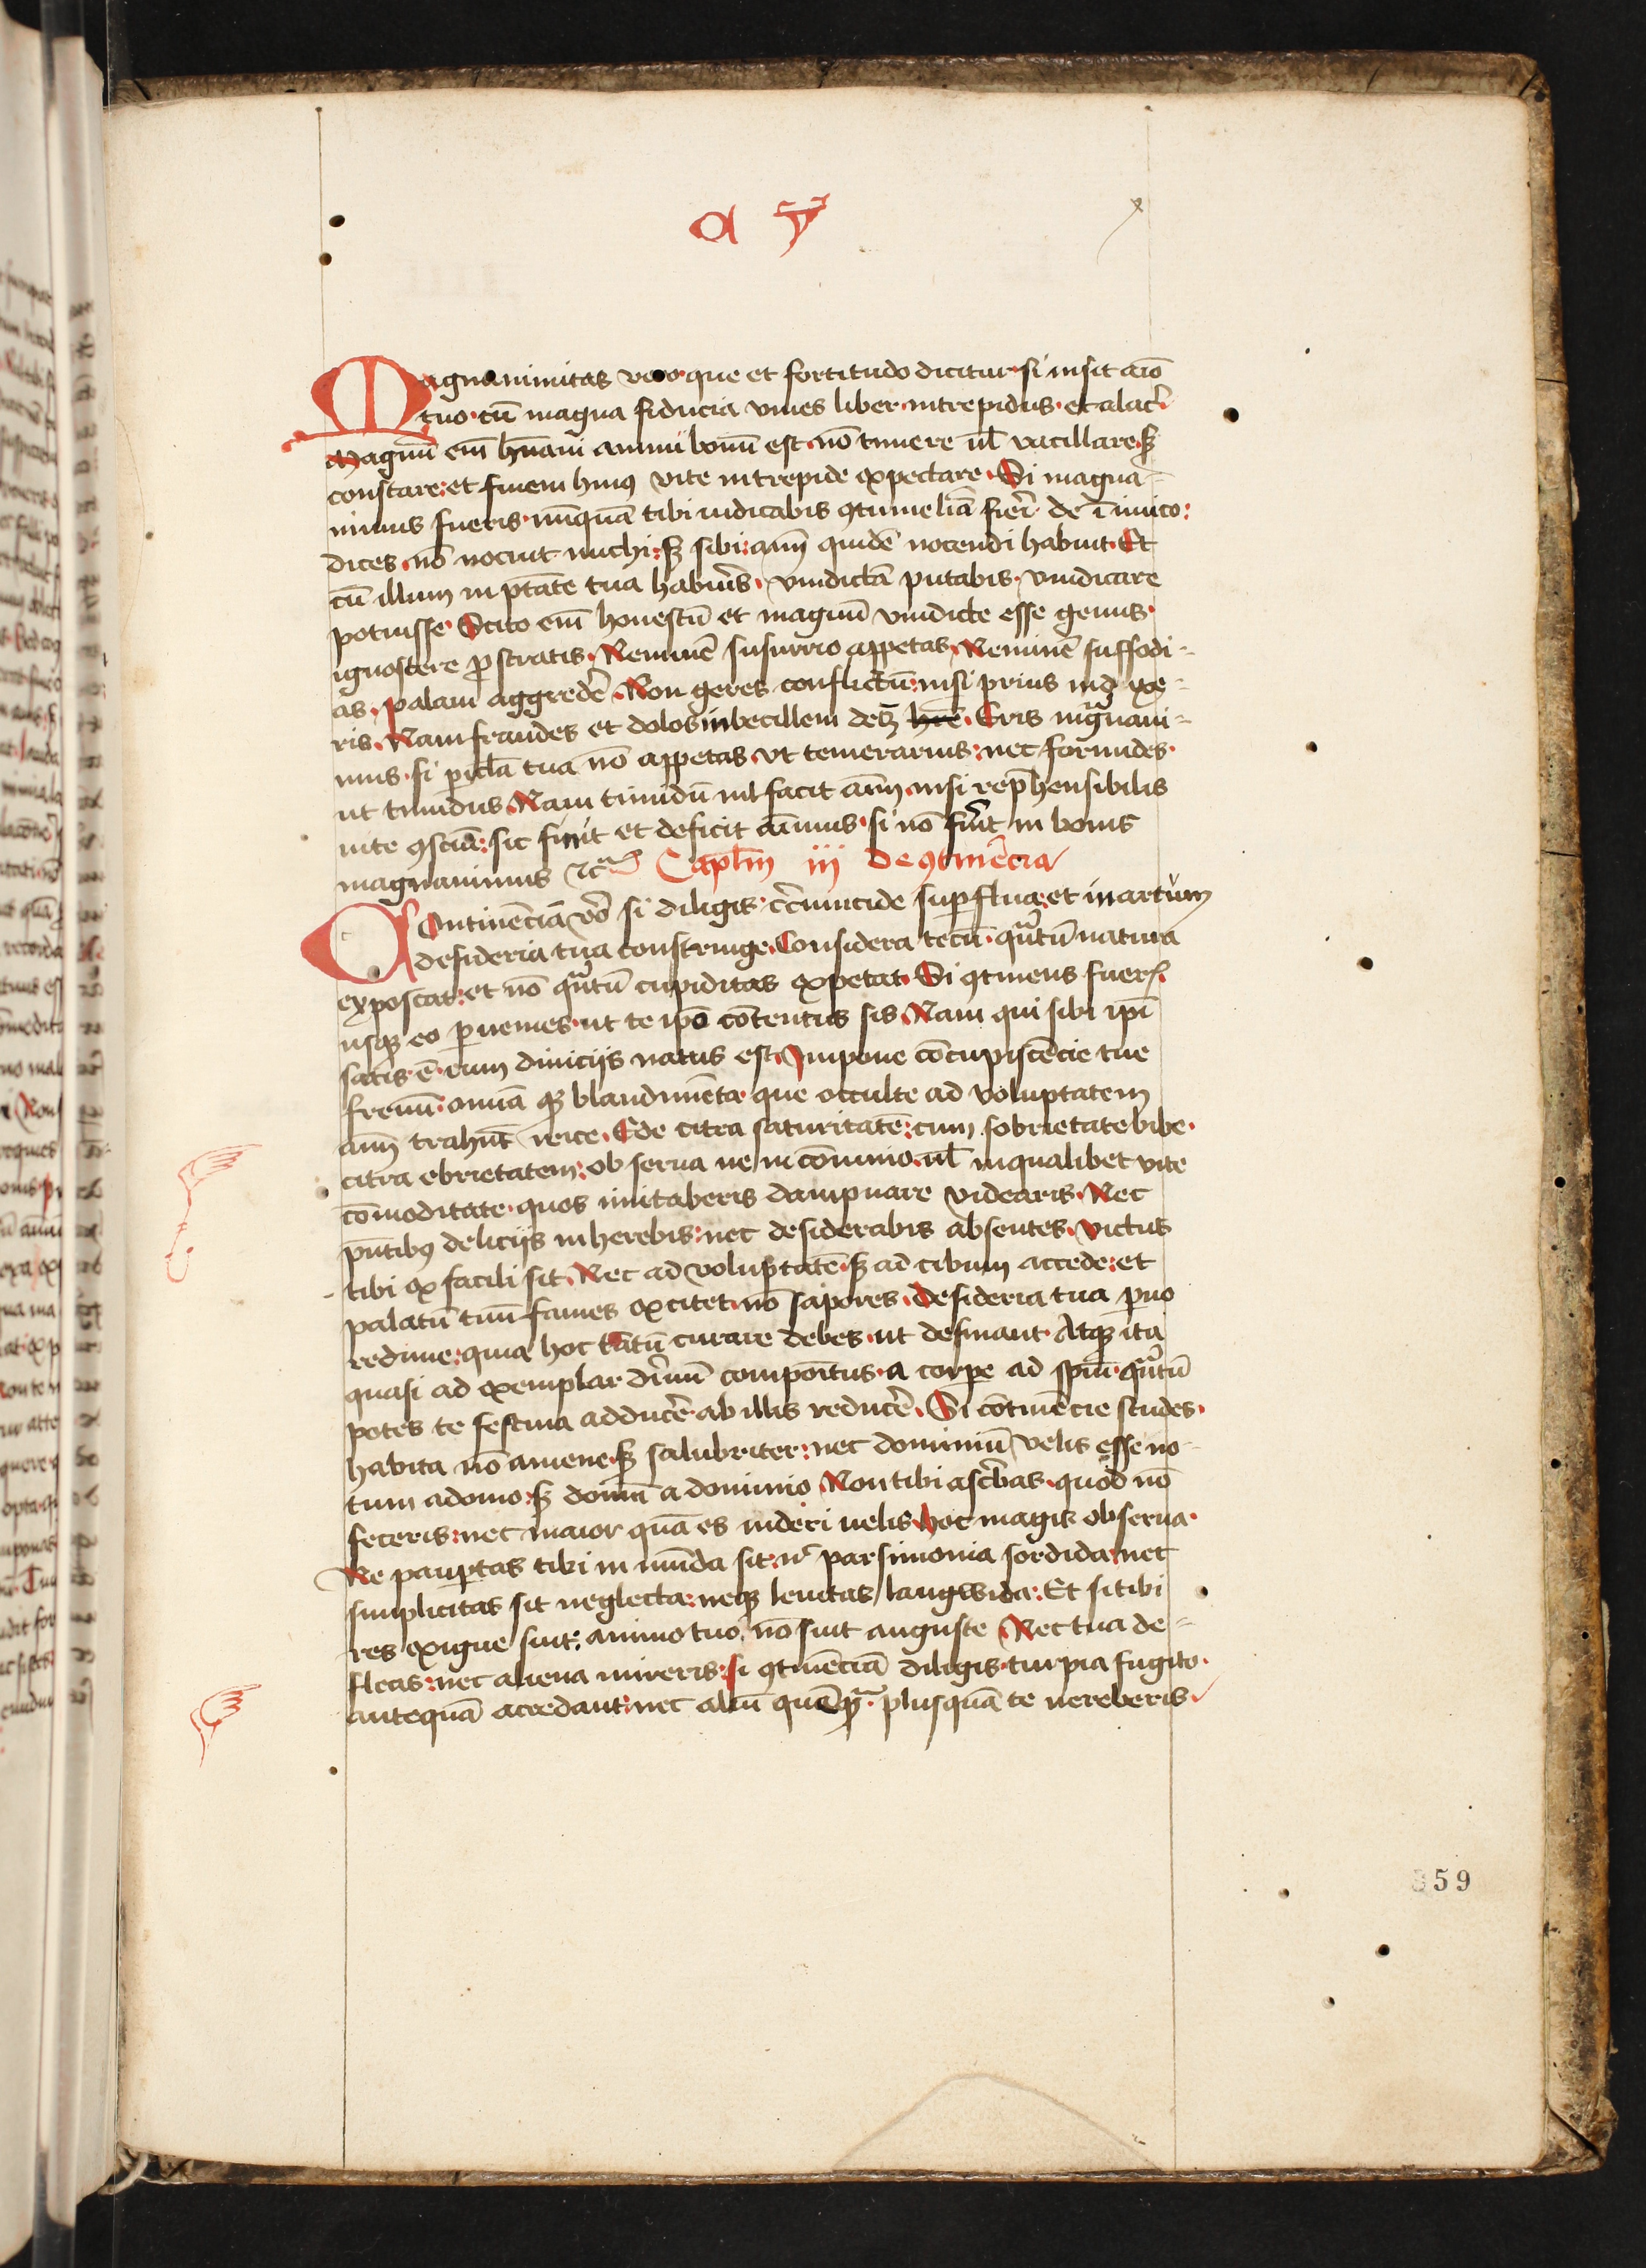 a v
Magnanimitas vero que et fortitudo dicitur si insit aīo
tuo cū magna fiducia viues liber intrepidus et alacr̄
Magnū em̄ hūani animi bonū est nō timere ul̄ vacillare sꝫ
constare: et finem huiꝰ vite intrepide expectare. Si magna-
nimus fueris nunquā tibi iudicabis ꝯtumeliā fierī de īimico:
dices nō nocuit michi: sꝫ sibi: aīm̄ quidē nocendi habuit. Et
cū illum in ptāte tua habuer̄s, vindictā putabis vindicare
potuisse Scito em̄ honestū et magnū vindicte esse genus
ignoscere ꝓstratis. Neminē susurrio appetas. Neminē suffodi-
as. palam aggredē. Non geres conflictū: nisi prius indixe-
ris. Nam fraudes et dolos inbecillem decꝫ Eris magnani-
mus si picl̄a tua nō appetas vt temerarius: nec formides
ut timidus. Nam timidū nil facit aīm̄ nisi rep̄hensibilis
uite ꝯsciē: sic finit et deficit aīmus si nō fūit in bonis
magnanimus ⁊cͣ Capl̄m iij De ꝯtinēcia
Continēciā vō si diligis cͬcumcide suꝑflua: et in artum
desideria tua constringe. Considera tecū quātū natura
exposcat: et nō quātū cupiditas expetat. Si ꝯtinens fueris
usqꝫ eo ꝑuenies ut te ip̄o cōtentus sis. Nam qui sibi ip̄i
satis ē cum diuicijs natus est. Impone cōcupiscēcie tue
frenū omīa qꝫ blandimēta que occulte ad voluptatem
aīm̄ trahūt reice. Ede citra saturitatē: cum sobrietate bibe
citra ebrietatem: obserua ne in conuiuio ul̄ in qualibet vite
cōmoditate quos imitaberis dampnare videaris. Nec
pn̄tibꝰ delicijs inherebis: nec desiderabis absentes. Victus
tibi ex facili sit. Nec ad voluptatē sꝫ ad cibum accede: et
palatū tuū fames excitet nō sapores. Desideria tua ꝑuo
redime: quia hoc tātū curare debes ut desinant. Atqꝫ ita
quasi ad exemplar diuinū compoītus a corpe ad spm̄ quātū
potes te festina adducē ab illis reducē. Si cōtinēcie studes
habita nō amene sꝫ salubriter: nec dominiū velis esse no-
tum a domo: sꝫ domū a dominio. Non tibi ascͬbas quod nō
feceris: nec maior quā es uideri uelis. hoc magis obserua
Ne pauꝑtas tibi in mūda sit: nͨ parsimonia sordida: nec
simplicitas sit neglecta: neqꝫ lenitas langwida: Et si tibi
res exigue sint: animo tuo nō sint anguste Nec tua de-
fleas: nec aliena mireris: si ꝯtinēciā diligis turpia fugito
antequā accedant: nec aliū quēqͣ plusquā te uereberis
359